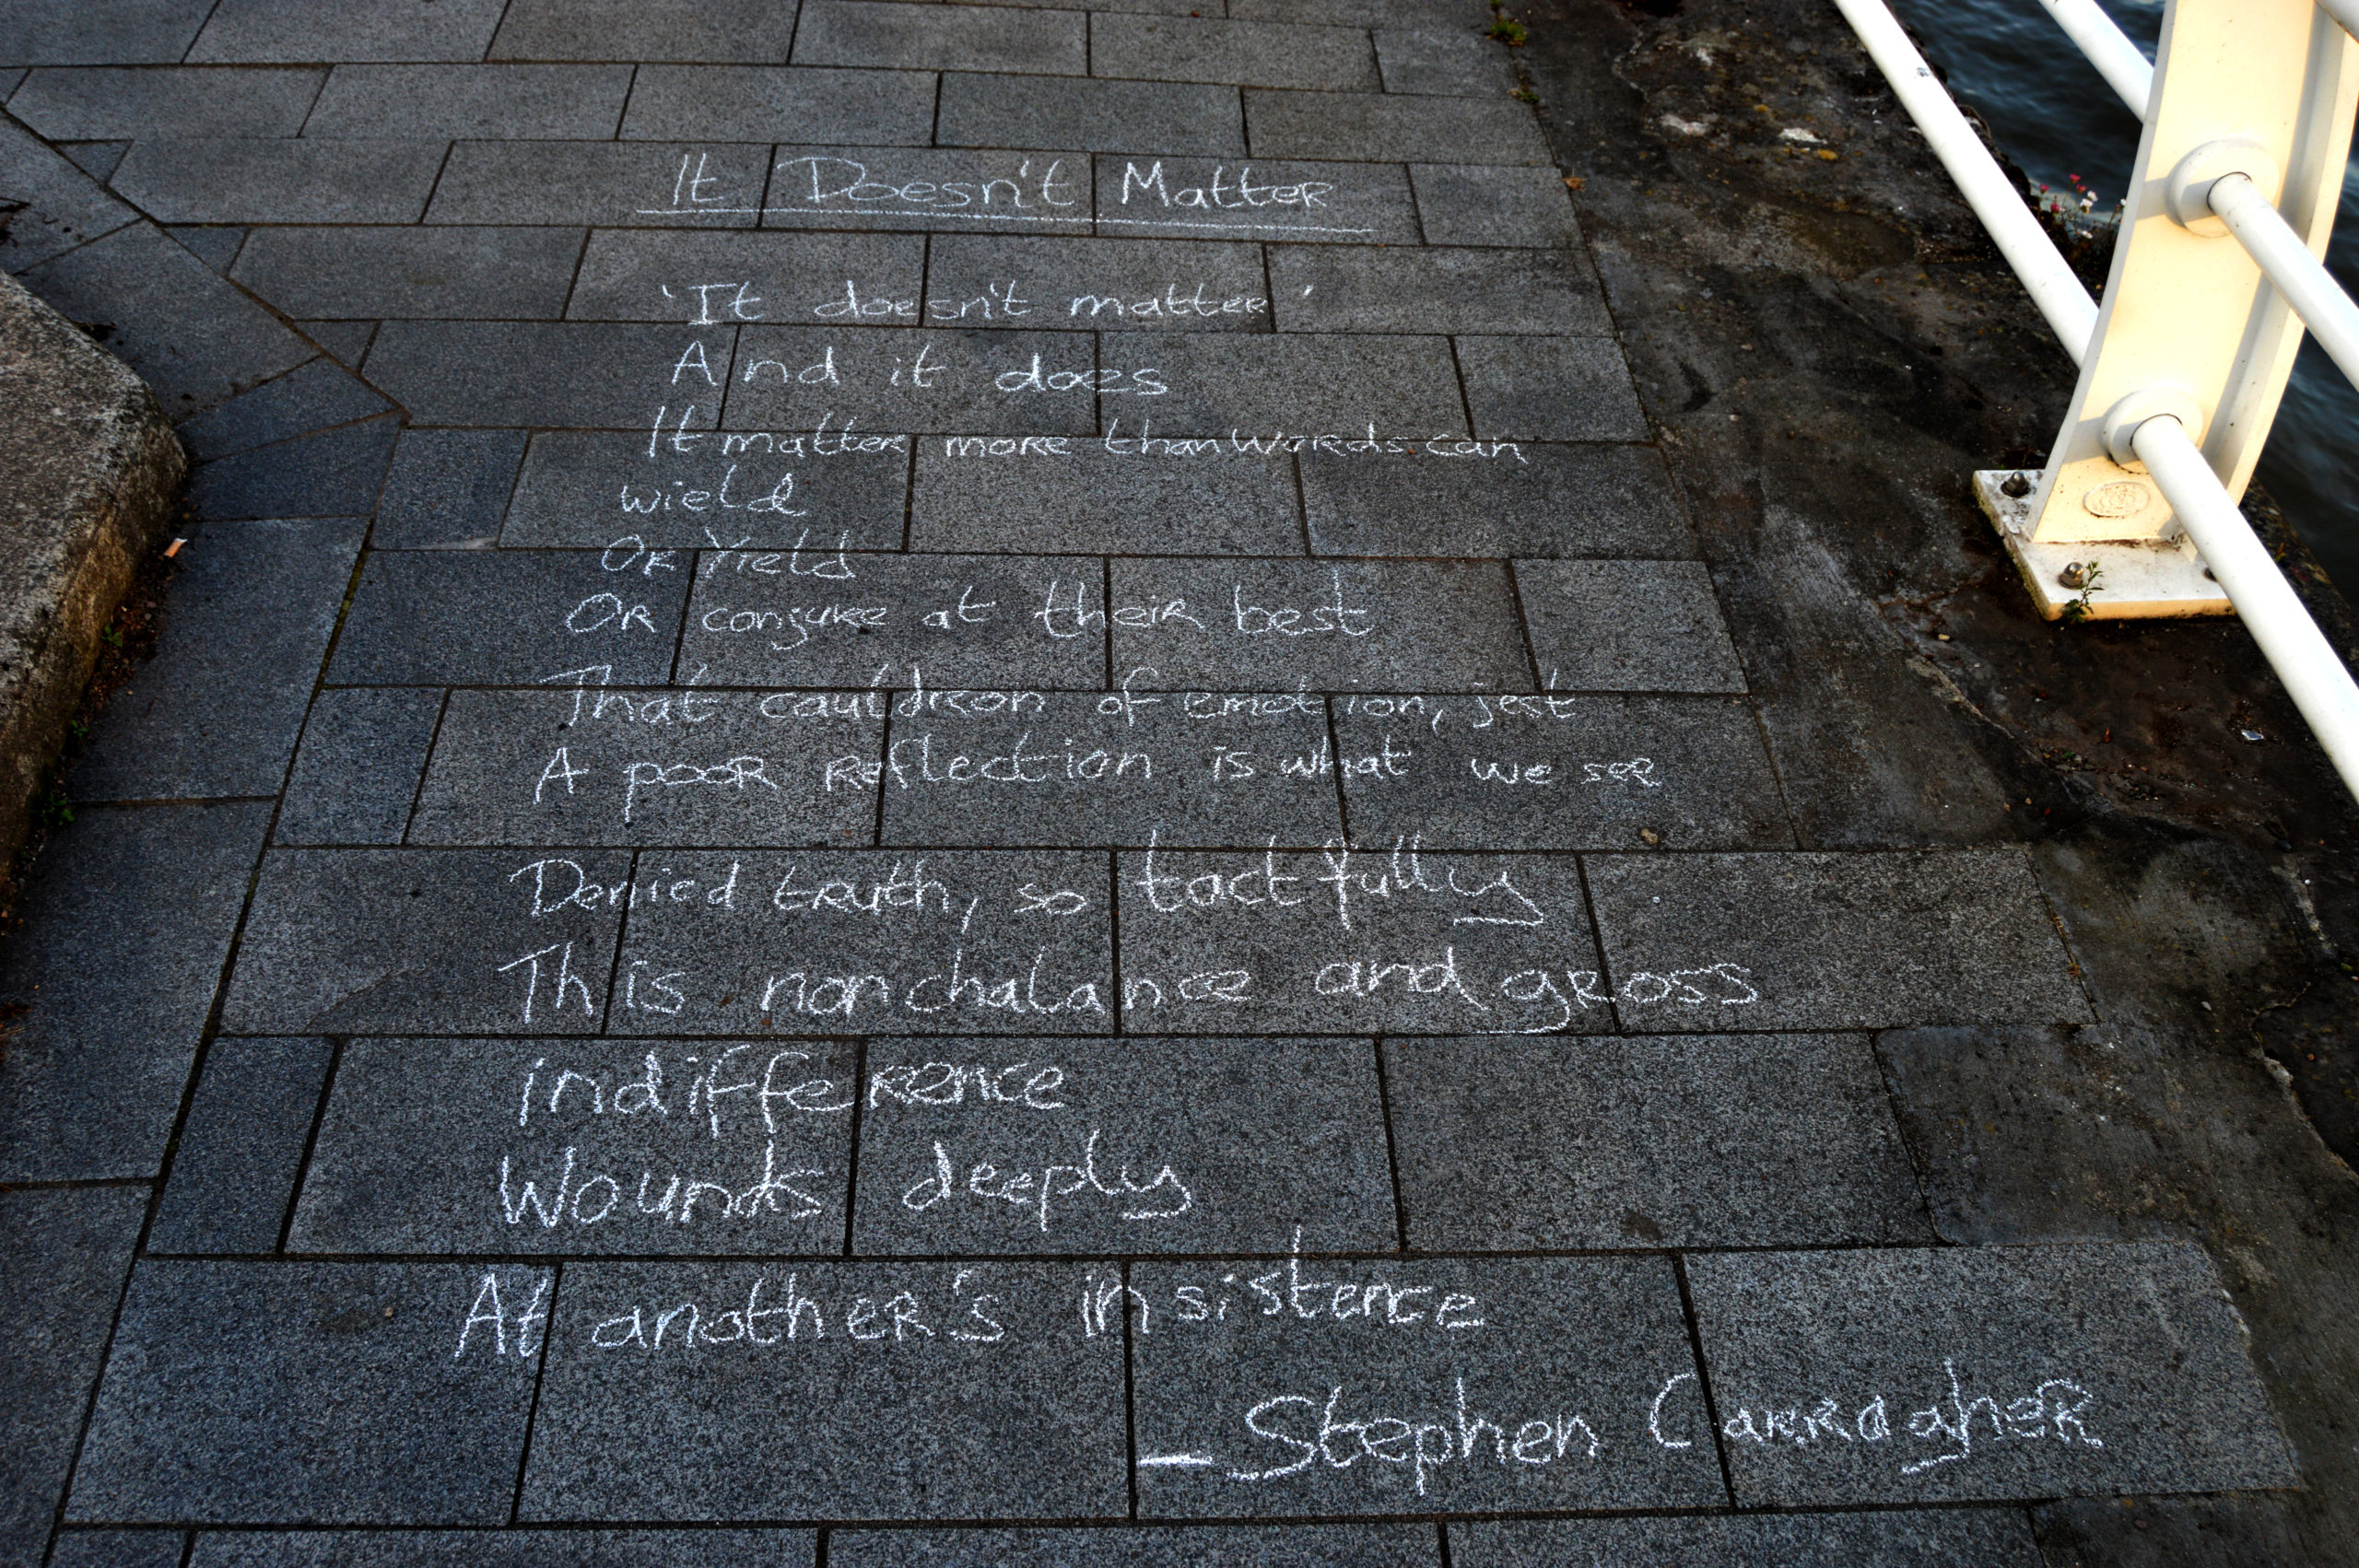 It Doesn't Matter
'It doesn't matter'
And it does
It matter more than words can
wield
Or Yield
Or conjure at their best
That cauldron of emotion, jest
A poor reflection is what we see
Denied truth, so tactfully
This nonchalance and gross
indifference
Wounds deeply
At another's insistence
- Stephen Carragher